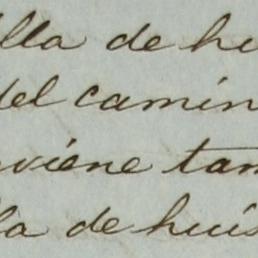 lla de hu
del camin
viene tam
la de huis